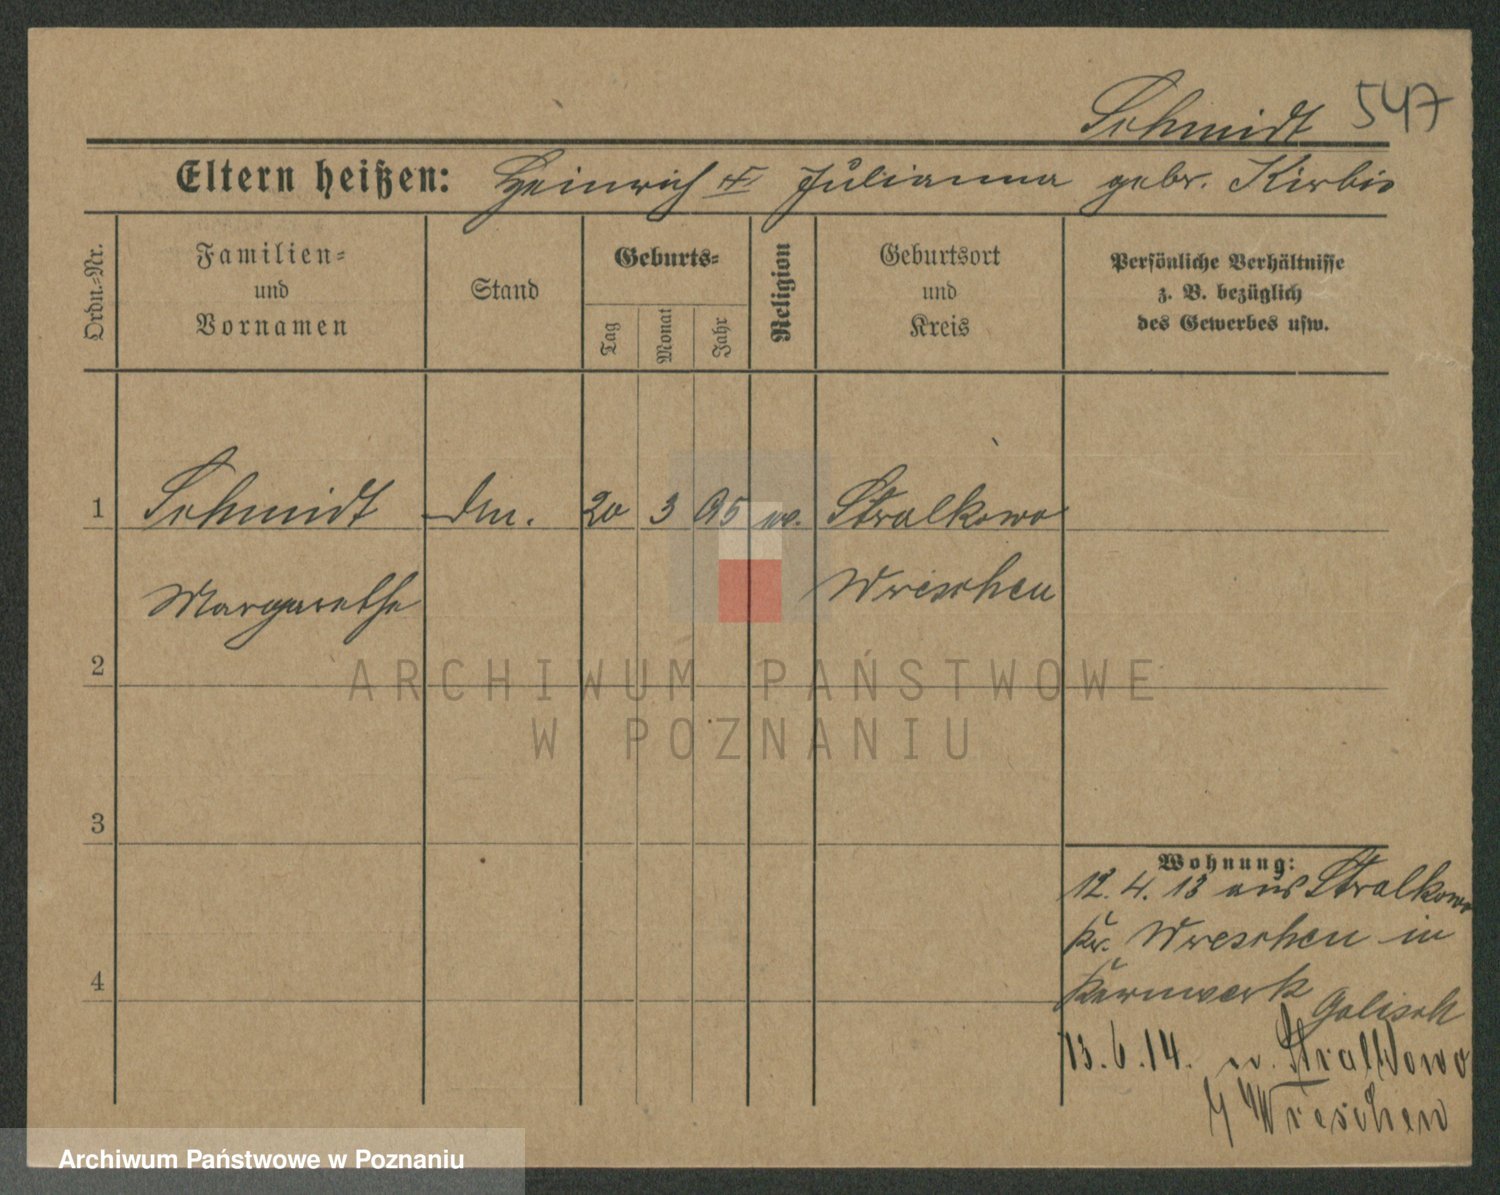 Schmidt 547
Eltern heißen: Heinrich u Julianna gebr. Kirbis
Ordn.-Nr.
Familien-
und
Vornamen
Stand
Geburts-
Tag
Monat
Jahr
Religion
Geburtsort
und
Kreis
Persönliche Verhältnisse
z. B. bezüglich
des Gewerbes usw.
1 Schmidt 20 3 95 ev. Stralkowo
Margarethe Wreschen
2
3
4
Wohnung:
12. 4. 13 aus Stralkowo
Kr. Wreschen in
Kernwerk
13. 6. 14. n. Stralkowo
Wreschen
ARCHIWUM PAŃSTWOWE
W POZNANIU
Archiwum Państwowe w Poznaniu